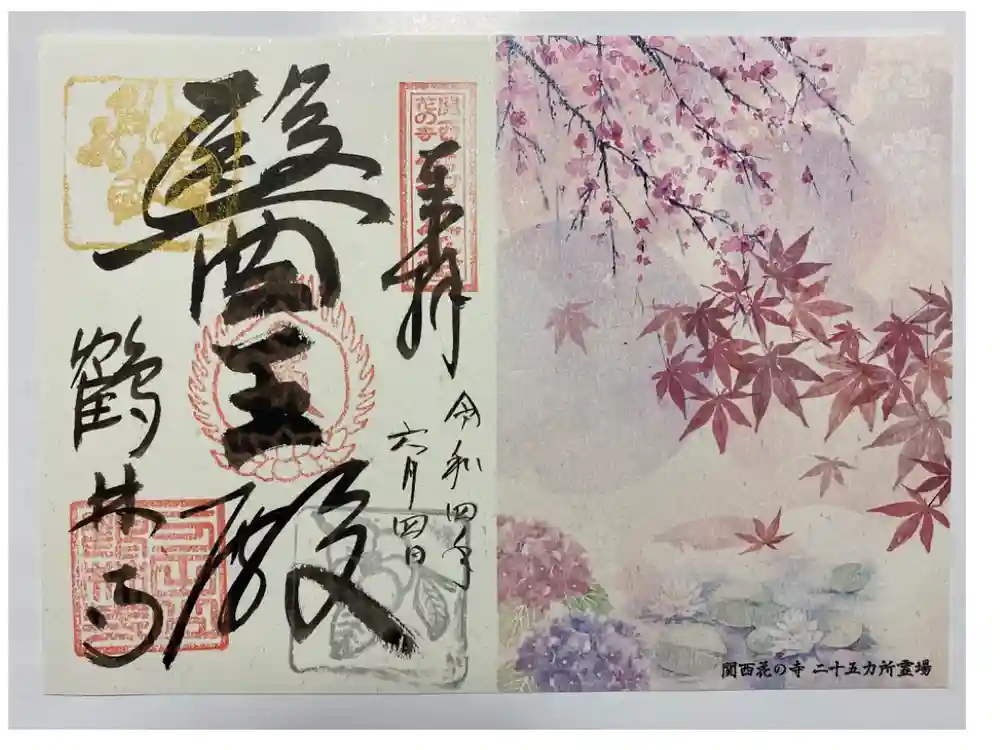 関西
花の寺
奉拝
令和四年
六月四日
醫王殿
鶴林寺
関西花の寺 二十五カ所霊場